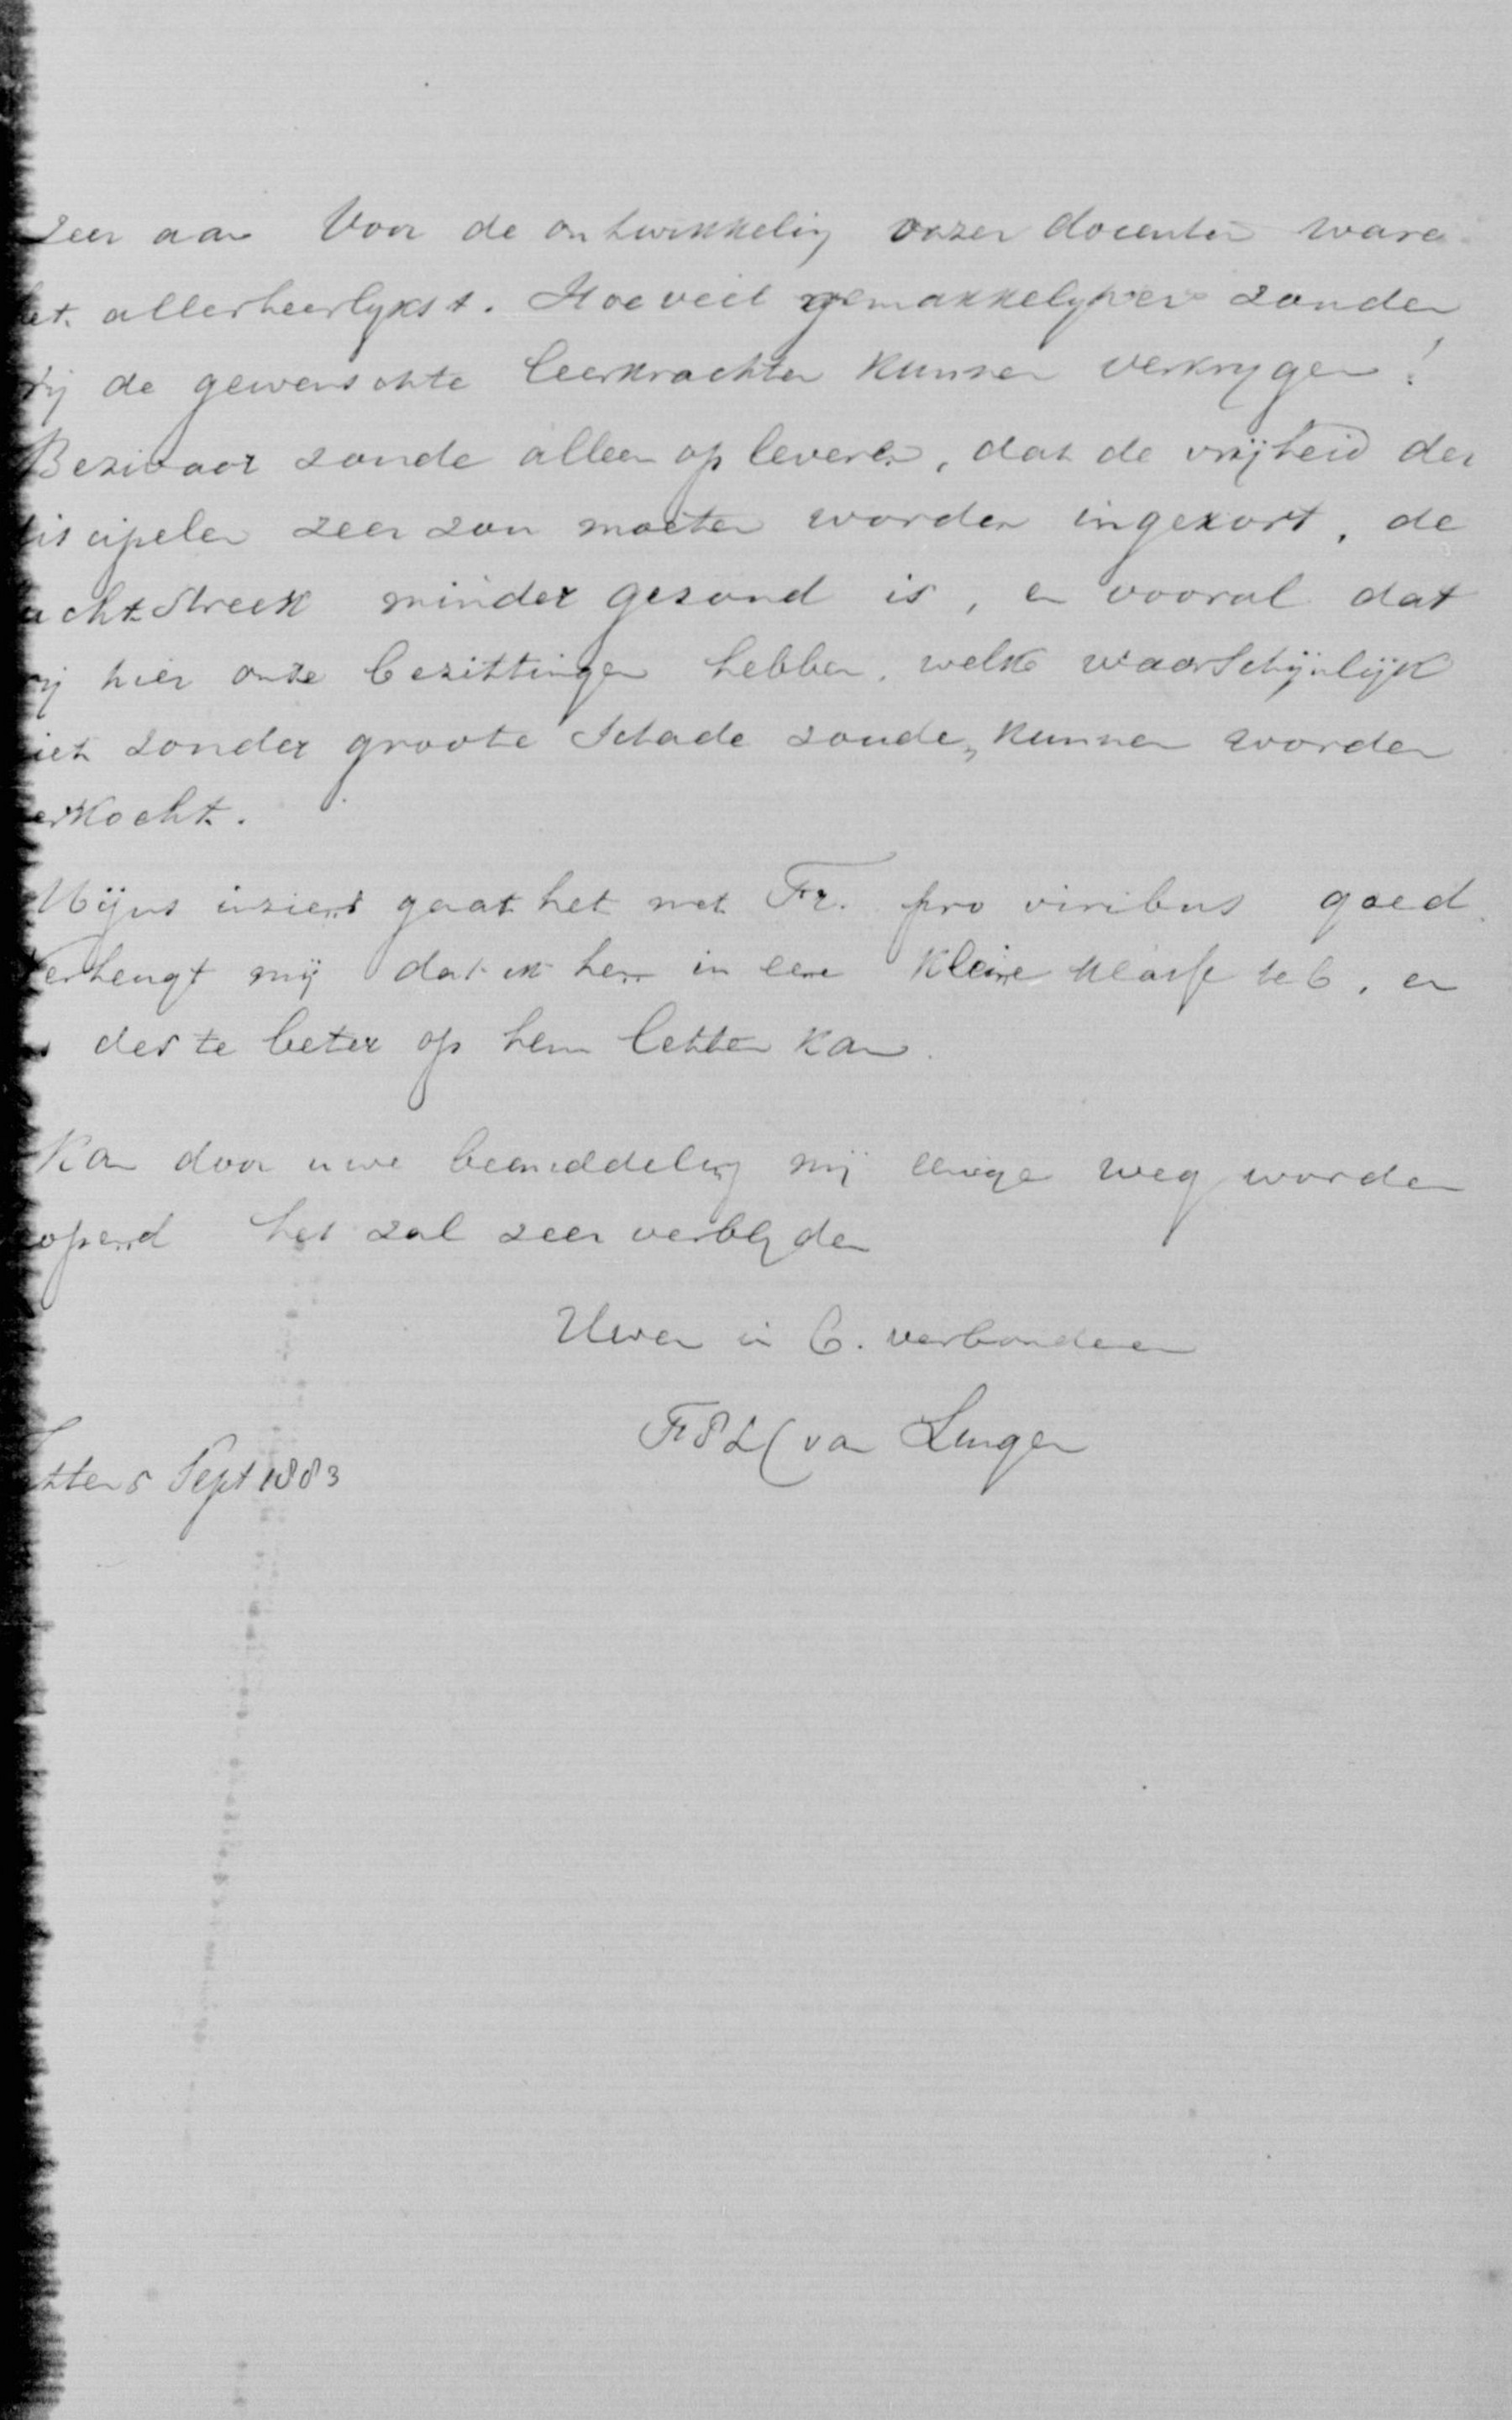 zeer aan Voor de ontwikkeling onzer docenten ware
het allerheerlykst. Hoeveel gemakkelyker zouden
wij de gewenschte leerkrachten kunnen verkrygen!
Bezwaar zoude alleen opleveren, dat de vrijheid der
discipelen zeer zou moeten worden ingekort, de
achtstreek minder gezond is, en vooral dat
wij hier onze bezittingen hebben, welke waarschijnlijk
niet zonder groote schade zouden kunnen worden
verkocht.
Mijns inziens gaat het met Fr. pro viribus goed.
Verheugt mij dat ik hem in eene kleine klasse heb, en
des te beter op hem letten kan.
Kan door uwe bemiddeling mij eenige weg worden
geopend het zal zeer verblyden
Uwen in C. verbonden
FPL C van Lingen
Zetten 5 Sept 1883